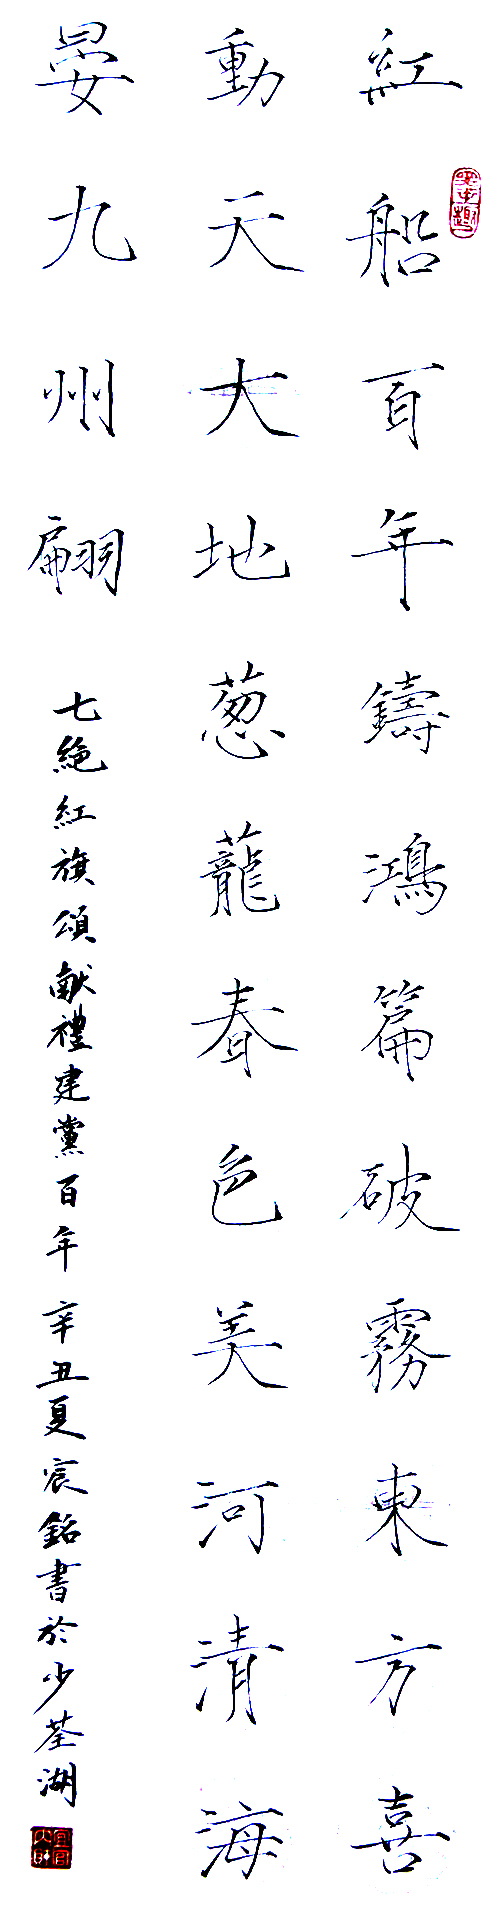 紅船百年鑄鴻篇破霧東方喜
動天大地葱蘢春色美河清海
晏九州翩
七絶紅旗頌献禮建黨百年辛丑夏宸銘書於少荃湖